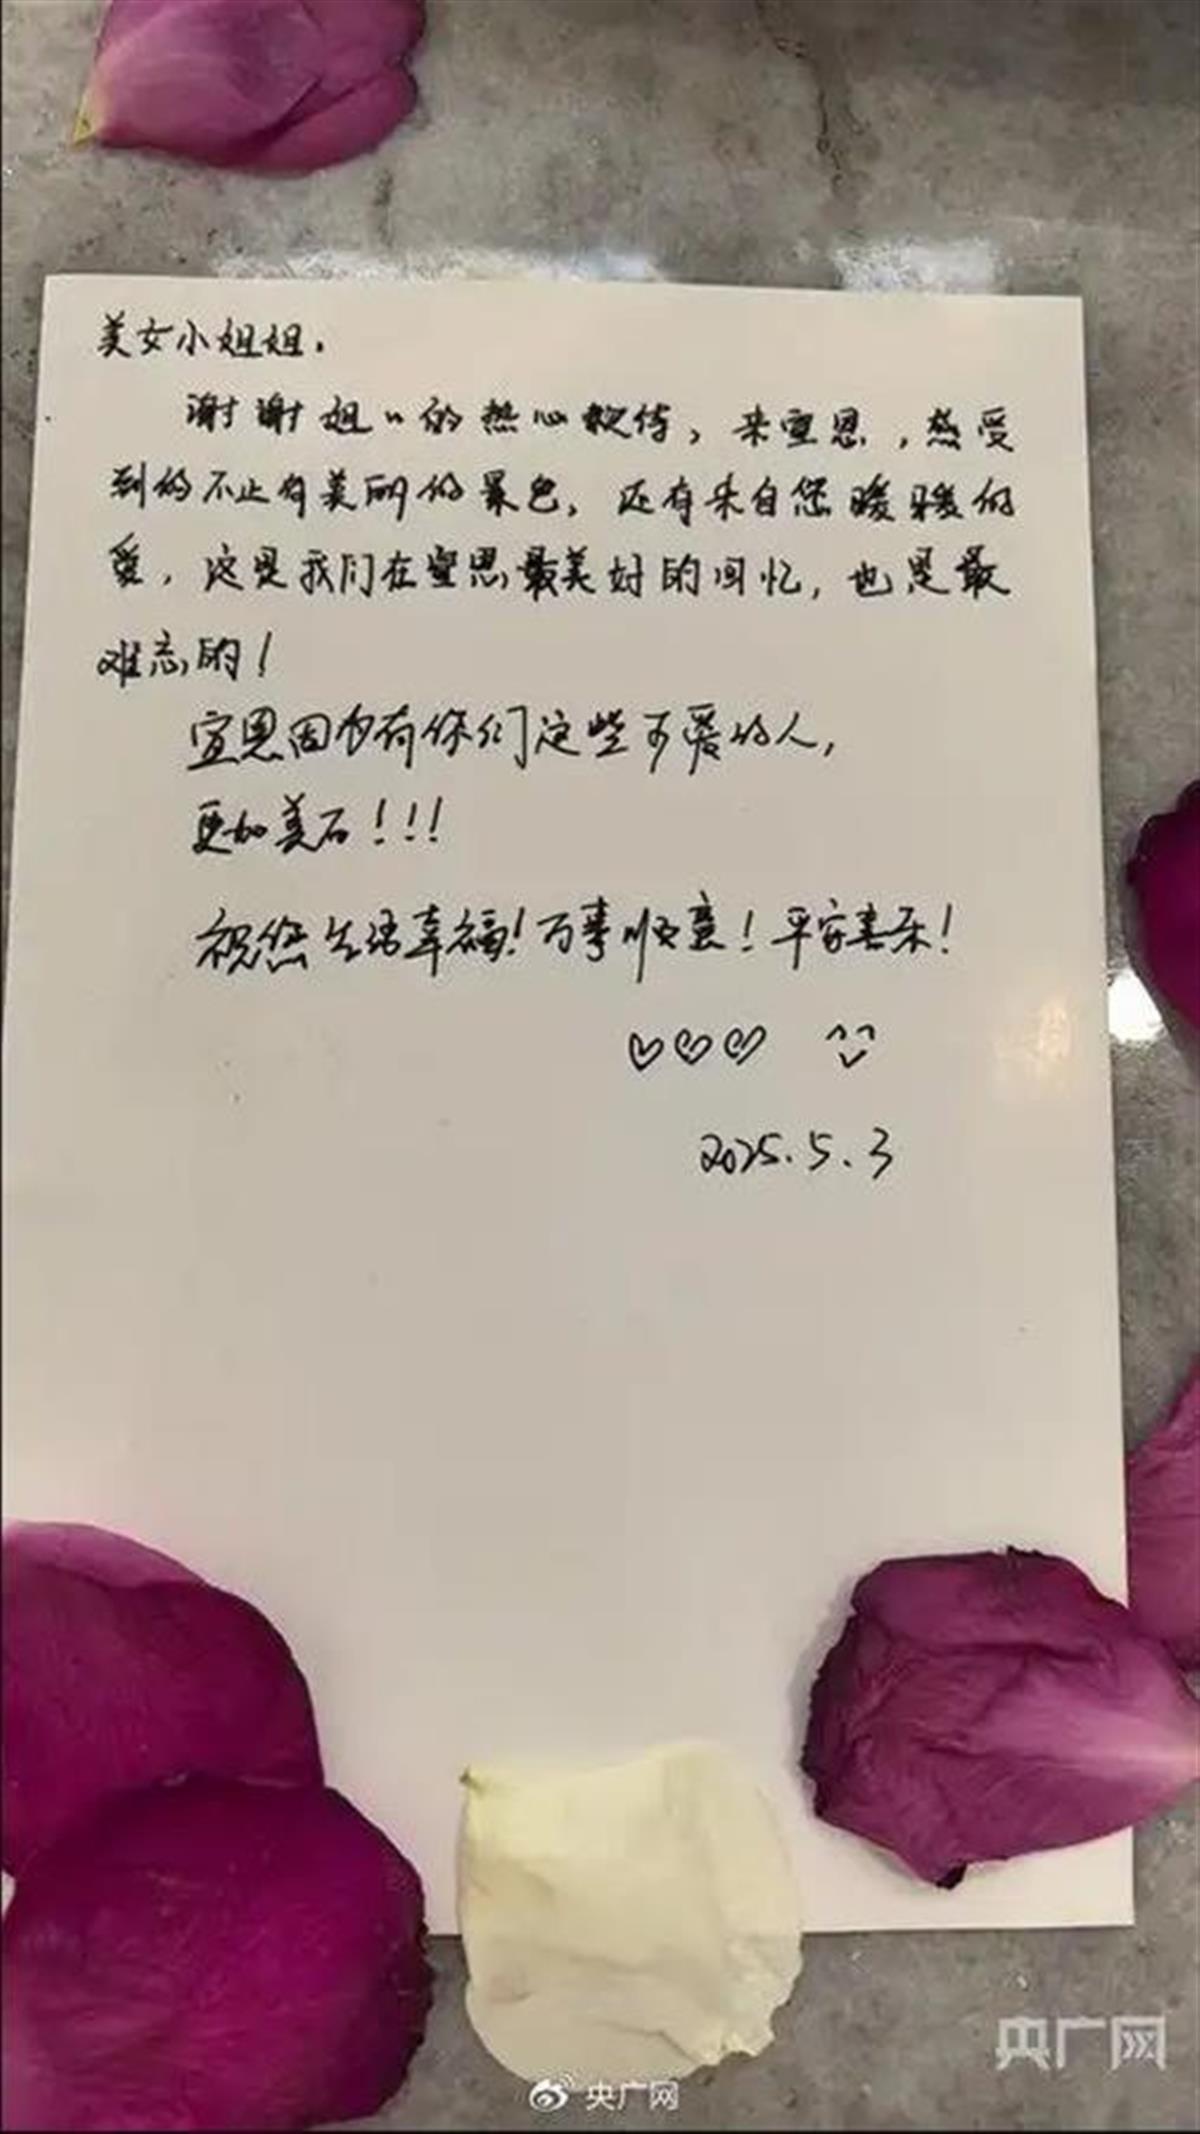 美女小姐姐，
谢谢姐〃的热心款待，来宣恩，感受
到的不止有美丽的景色，还有来自您暖暖的
爱，这是我们在宣恩最美好的回忆，也是最
难忘的！
宣恩因为有你们这些可爱的人，
更加美丽！！！
祝您生活幸福！万事顺意！平安喜乐！
2025.5.3
央广网
央广网